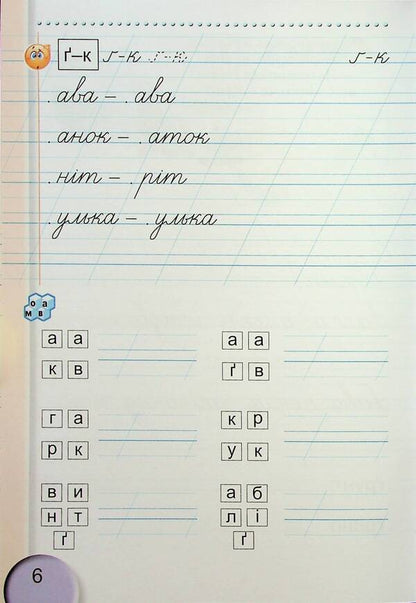 ґ–к г-к г-к г-к
.ава – .ава
.анок – .аток
.ніт – .ріт
.улька – .улька
о а
м в
а а
к в
а а
ґ в
г а
р к
к р
у к
в и
н т
ґ
а б
л і
ґ
6